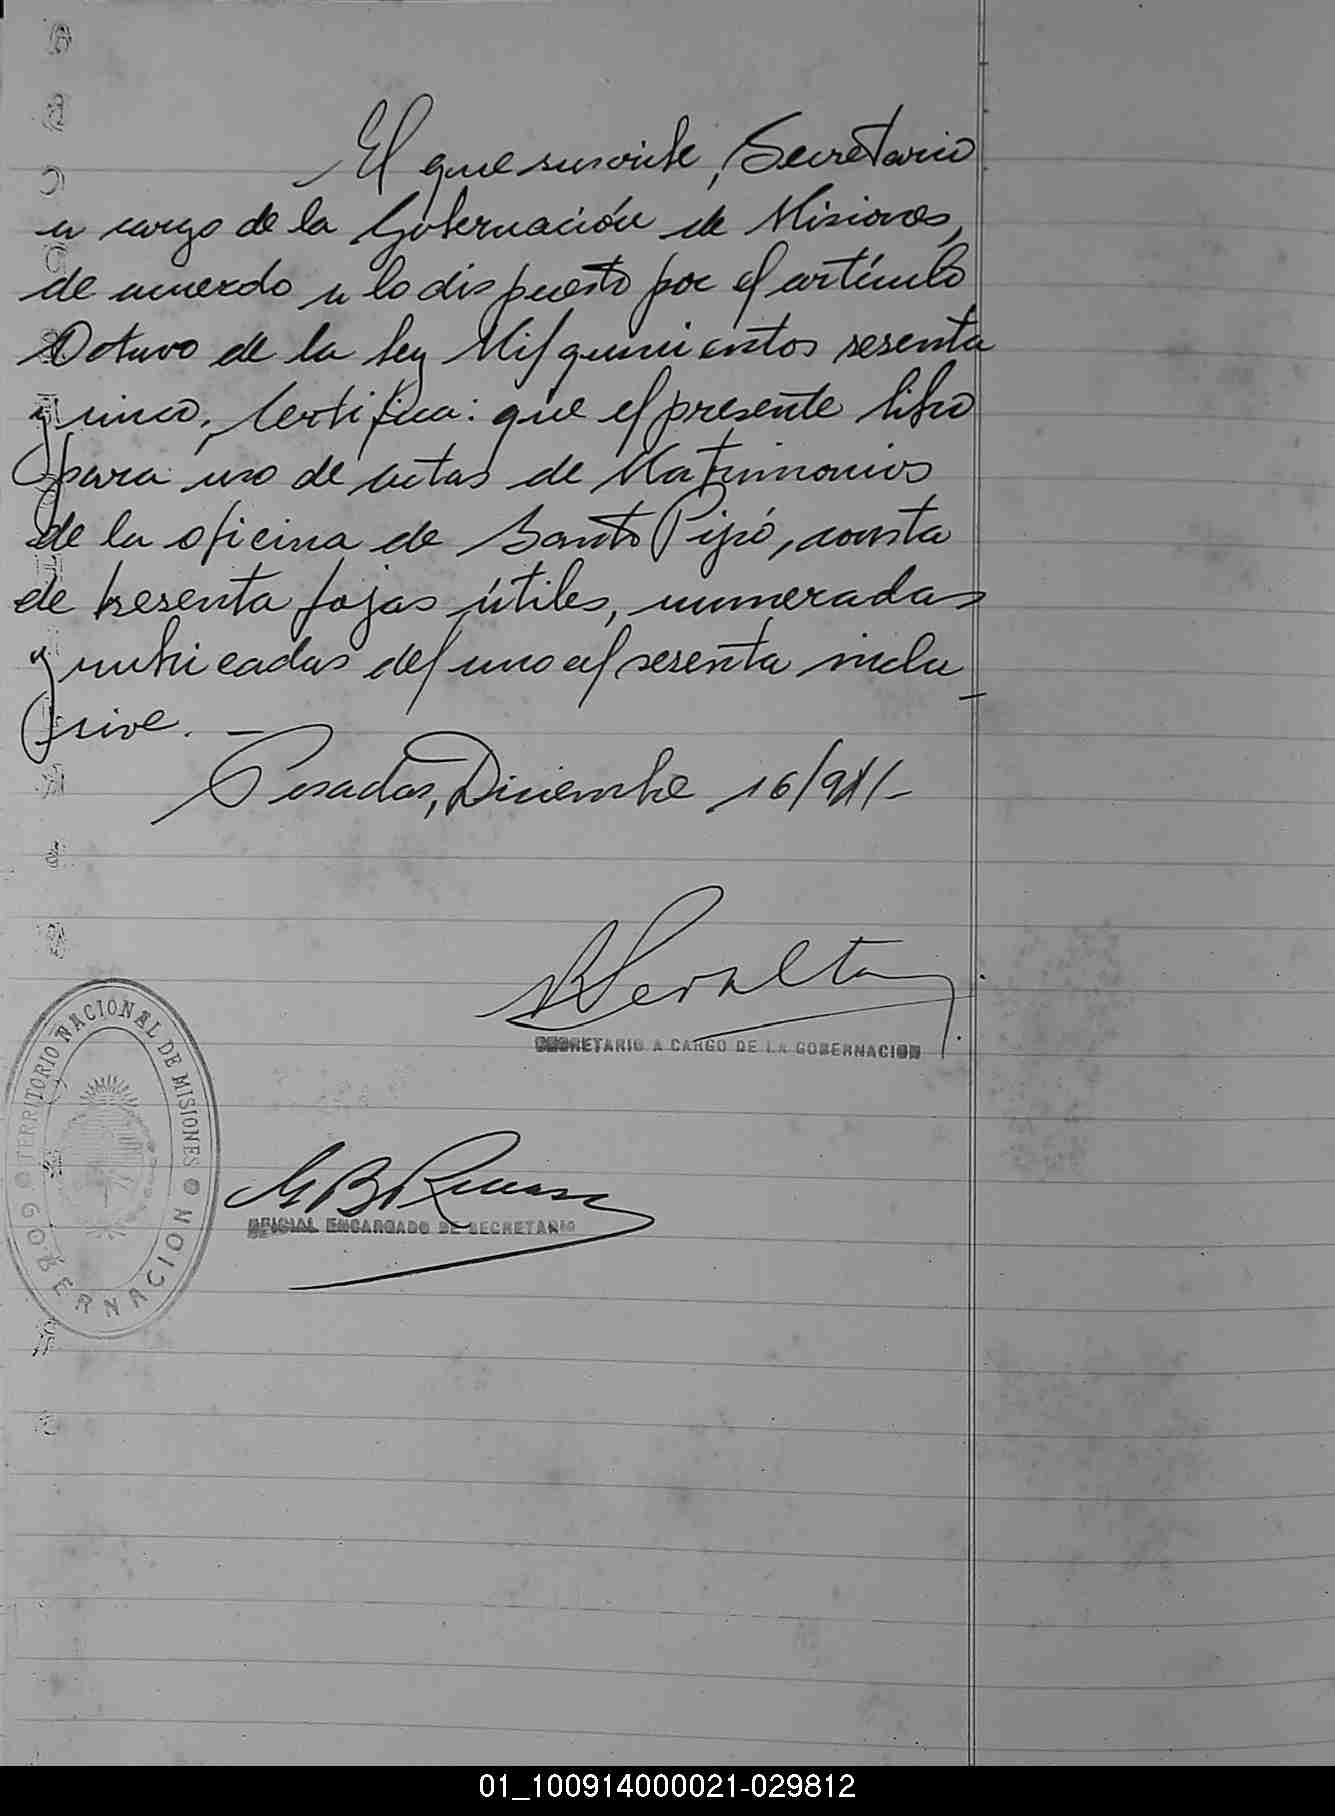 El que suscribe, Secretario
a cargo de la Gobernación de Misiones,
de acuerdo a lo dispuesto por el artículo
Octavo de la ley Mil quinientos sesenta
y cinco, Certifica: que el presente libro
para uso de actas de Matrimonios
de la oficina de Santo Pipó, consta
de sesenta fojas útiles, numeradas
y rubricadas del uno al sesenta inclu-
sive. —
Posadas, Diciembre 16/941/-
Peralta
SECRETARIO A CARGO DE LA GOBERNACION
TERRITORIO NACIONAL DE MISIONES
GOBERNACION
OFICIAL ENCARGADO DE SECRETARIO
01_100914000021-029812